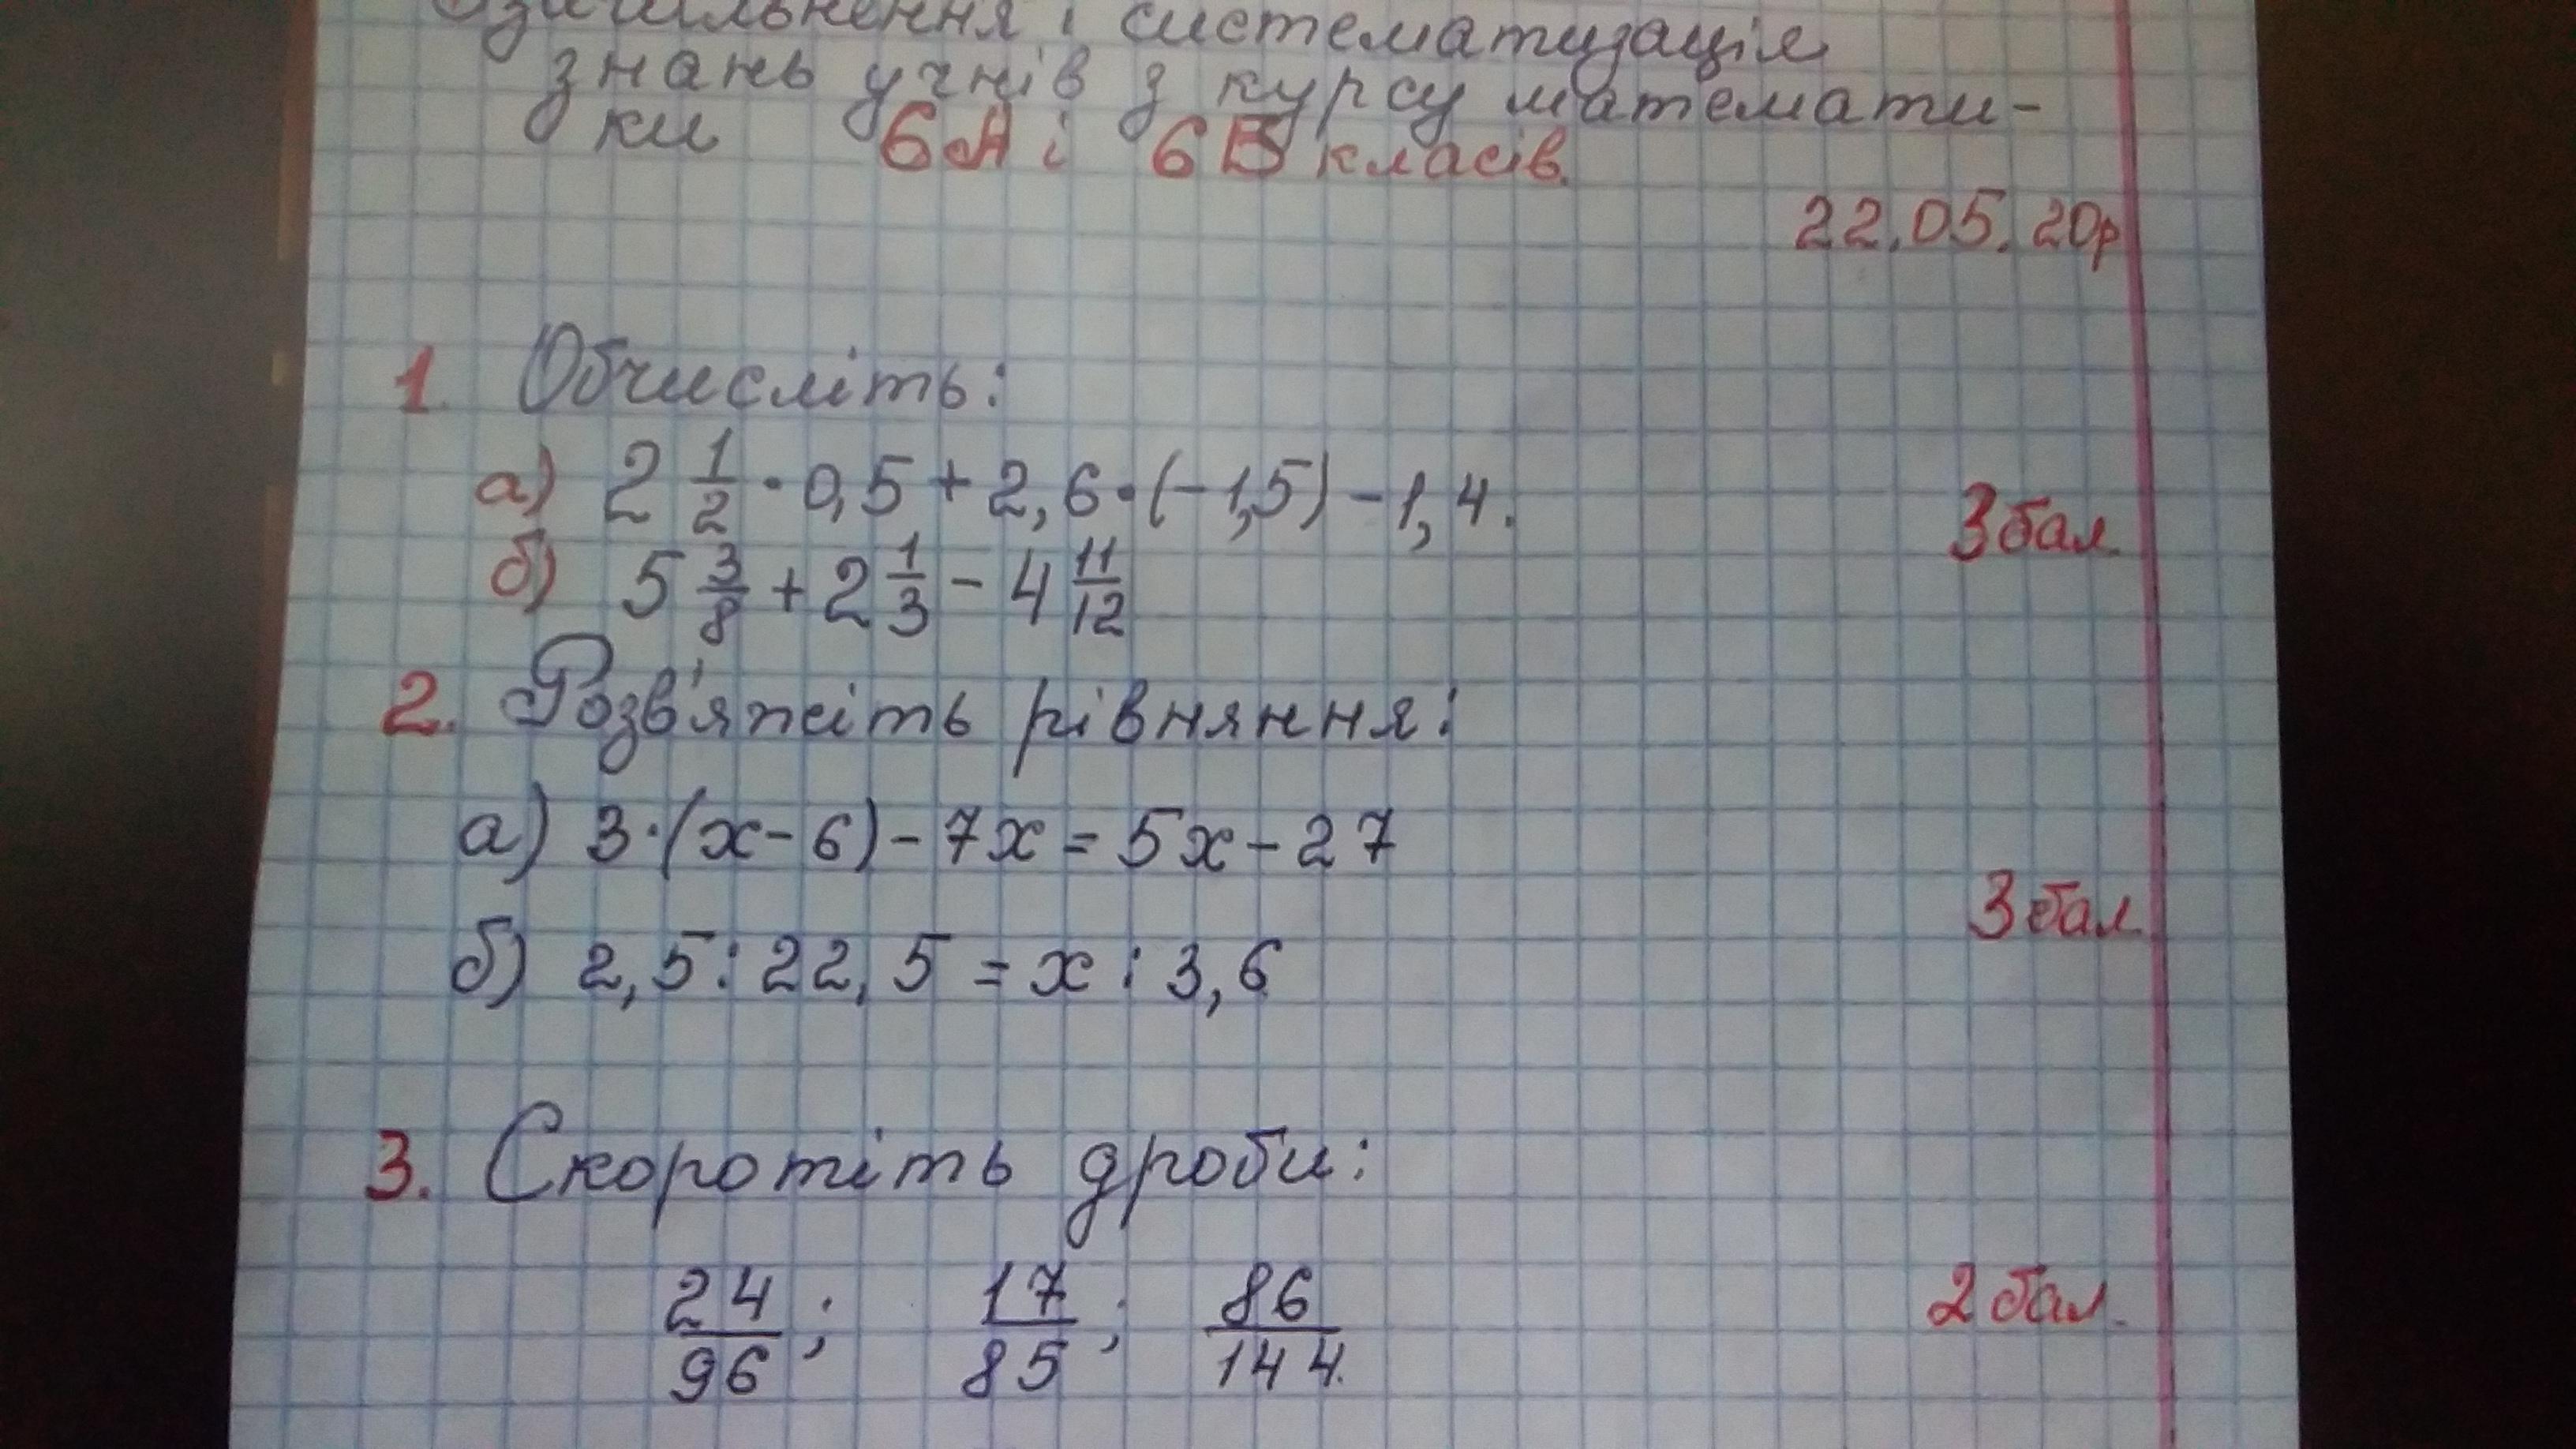 Узагальнення і систематизація
знань учнів з курсу математи-
ки 6А і 6В класів.
22.05.20р
1. Обчисліть:
а) 2 1/2 · 0,5 + 2,6 · (-1,5) - 1,4.
3 бал.
б) 5 3/8 + 2 1/3 - 4 11/12
2. Розв'яжіть рівняння:
а) 3·(x-6) - 7x = 5x - 27
3 бал
б) 2,5 : 22,5 = x : 3,6
3. Скоротіть дроби:
24/96; 17/85; 86/144.
2 бал.